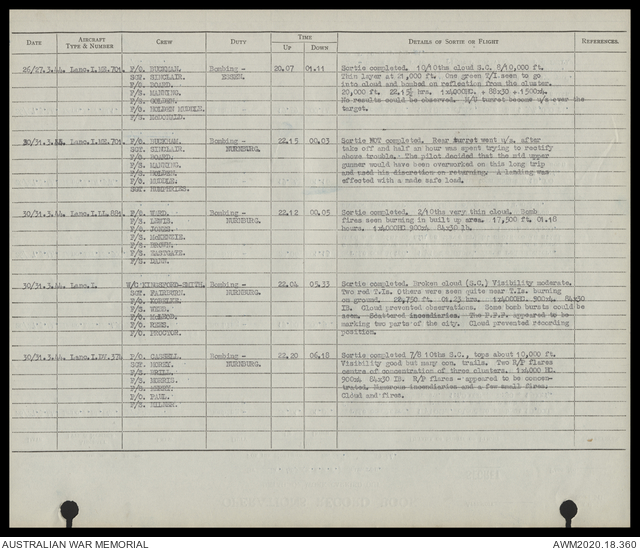 DATE AIRCRAFT TYPE & NUMBER CREW DUTY TIME UP DOWN DETAILS OF SORTIE OR FLIGHT REFERENCES.
26/27.3.44. Lanc.I. 701. F/O. Bombing - 20.07 01.11 Sortie completed. 10/10ths cloud S.C. 8/10,000 ft.
SGT. SINCLAIR. ESSEN. Thin layer at 21,000 ft. One green T/I seen to go
F/S. BOARD. into cloud and bombed on reflection from the cluster.
F/S. MANNING. 20,000 ft. hrs. 1x4000HC. + 88x30 + 1500x4.
F/S. No results could be observed. turret became u/s over the
F/S. target.
F/S.
30/31.3.44. Lanc.I. 701. F/O. Bombing - 22.15 00.03 Sortie NOT completed. Rear turret went u/s. after
SGT. SINCLAIR. NURNBURG. take off and half an hour was spent trying to rectify
F/S. BOARD. above trouble. The pilot decided that the mid upper
F/S. MANNING. gunner would have been overworked on this long trip
F/S. and used his discretion on returning. A landing was
F/S. effected with a made safe load.
SGT. HUMPHRIES.
30/31.3.44. Lanc.I.LL.881. F/S. WARD. Bombing - 22.12 00.05 Sortie completed. 2/10ths very thin cloud. Bomb
F/S. LEWIS. NURNBURG. fires seen burning in built up area. 17,500 ft. 01.18
F/O. JONES. hours. 1x4000HC 900x4. 84x30 lb.
F/S. McKENZIE.
F/S. BROWN.
F/S.
F/S.
30/31.3.44. Lanc.I. W/O KINGSFORD-SMITH. Bombing - 22.04 05.33 Sortie completed. Broken cloud (S.C.) Visibility moderate.
SGT. FAIRBURN. NURNBURG. Two red T.Is. Others were seen quite near T.Is. burning
F/O. on ground. 01.23 hrs. 1x4000HC. 900x4. 84x30
F/S. WEBB. IB. Cloud prevented observations. Some bomb bursts could be
F/S. seen. Scattered incendiaries. The P.F.F. appeared to be
F/O. marking two parts of the city. Cloud prevented recording
F/O. PROCTOR. position.
30/31.3.44. Lanc.I.DV.374 F/O. Bombing - 22.20 06.18 Sortie completed 7/8 10ths S.C., tops about 10,000 ft.
SGT. MOREY. NURNBURG. Visibility good but many con. trails. Two R/P flares
F/S. centre of concentration of three clusters. 1x4000 HC.
F/S. MORRIS. 900x4 84x30 IB. R/P flares - appeared to be concen-
F/S. trated. Numerous incendiaries and a few small fires.
F/O. PAUL. Cloud and fires.
F/S.
AUSTRALIAN WAR MEMORIAL AWM2020.18.360